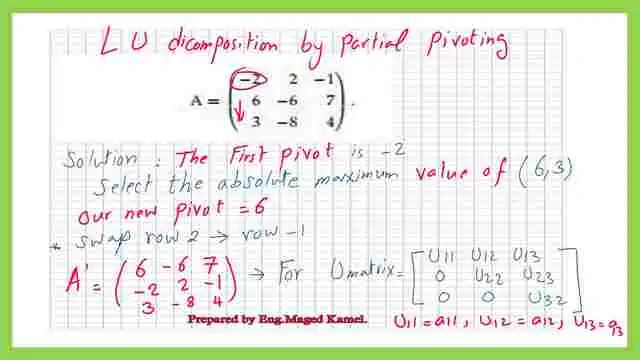 LU dicomposition by partial pivoting
A = ( -2 2 -1
6 -6 7
3 -8 4 ).
Solution: The First pivot is -2
Select the absolute maximum value of (6,3)
our new pivot = 6
* swap row 2 → row -1
A' = ( 6 -6 7
-2 2 -1
3 -8 4 ) → For U matrix = [ U11 U12 U13
0 U22 U23
0 0 U32 ]
U11 = a11, U12 = a12, U13 = a13
Prepared by Eng.Maged Kamel.